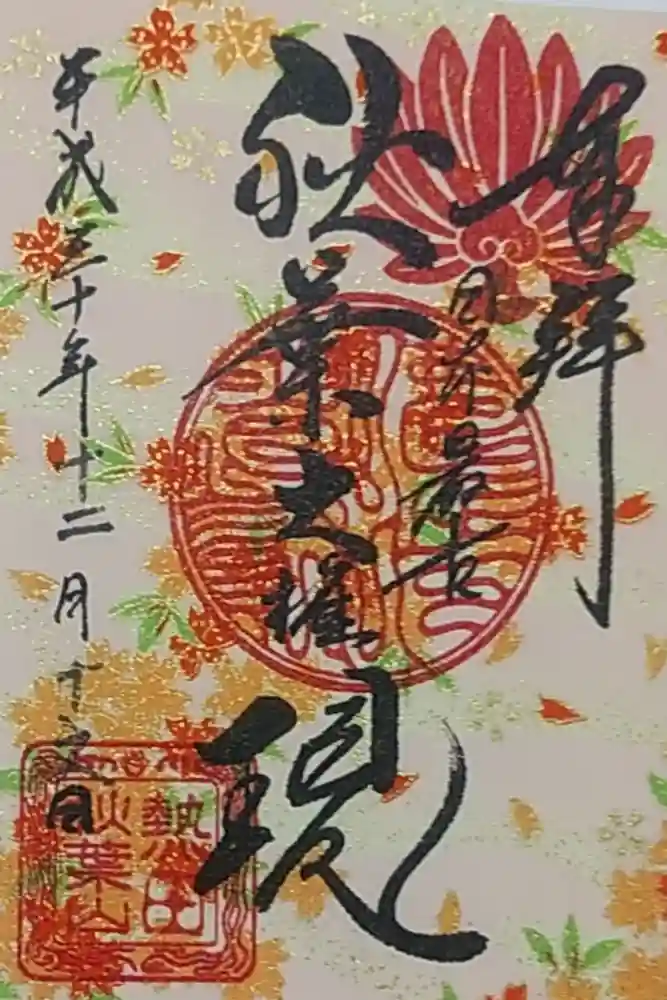 奉拝
日本最古
秋葉大権現
平成三十年十二月十六日
熱田
秋葉山